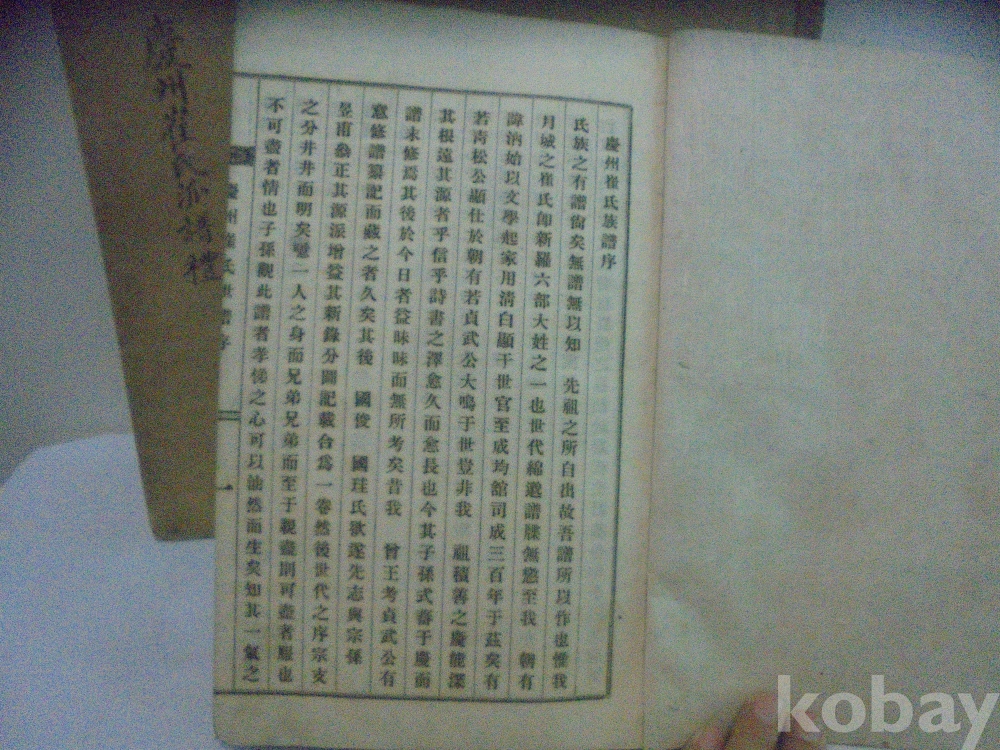 慶州崔氏族譜序
氏族之有譜尙矣無譜無以知 先祖之所自出故吾譜所以作也惟我
月城之崔氏卽新羅六部大姓之一也世代綿邈譜牒無憑至我 朝有
諱汭始以文學起家用淸白顯于世官至成均館司成三百年于茲矣有
若靑松公顯仕於朝有若貞武公大鳴于世豈非我 祖積善之慶能深
其根遠其源者乎信乎詩書之澤愈久而愈長也今其子孫式蕃于慶而
譜未修爲其後於今日者益昧昧而無所考矣昔我 曾王考貞武公有
意修譜纂記而藏之者久矣其後 國俊 國珪氏欲遂先志與宗孫
昱甫叅正其源派增益其新錄分圖記載合爲一卷然後世代之序宗支
之分井井而明矣噫一人之身而兄弟兄弟而至于親盡則可盡者服也
不可盡者情也子孫觀此譜者孝悌之心可以油然而生矣知其一氣之
慶州崔氏世譜序
一
慶州崔氏派譜禮
kobay